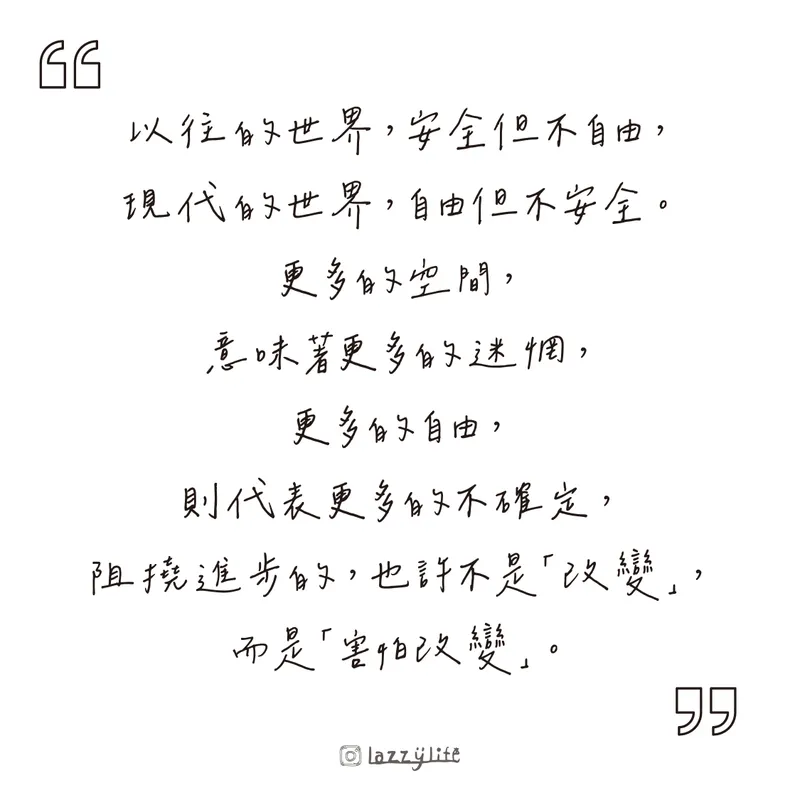 以往的世界，安全但不自由，
現代的世界，自由但不安全。
更多的空間，
意味著更多的迷惘，
更多的自由，
則代表更多的不確定，
阻撓進步的，也許不是「改變」，
而是「害怕改變」。
lazzylife